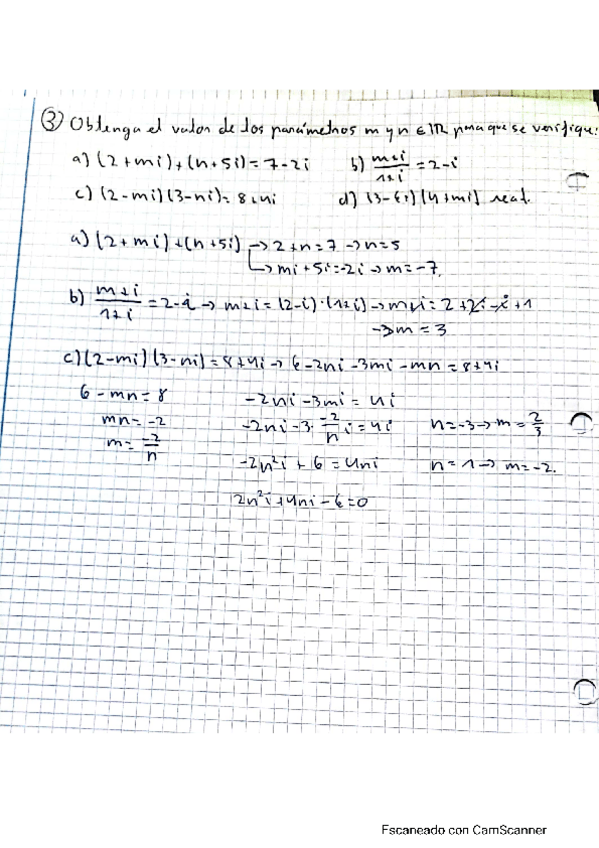 ③ Obtenga el valor de los parámetros m y n ∈ ℝ para que se verifique:
a) (2+mi)+(n+5i)=7-2i b) m+i/1+i = 2-i
c) (2-mi)(3-ni)=8+4i d) (3-6i)(4+mi) real.
a) (2+mi)+(n+5i) → 2+n=7 → n=5
↳ mi+5i=-2i → m=-7.
b) m+i/1+i = 2-i → m+i=(2-i)·(1+i) → m+i=2+2i-i+1
→ m=3
c) (2-mi)(3-ni)=8+4i → 6-2ni-3mi-mn=8+4i
6-mn=8 -2ni-3mi=4i
mn=-2 -2ni-3·-2/n i=4i n=-3 → m=2/3
m=-2/n
-2n²i+6=4ni n=1 → m=-2.
2n²i+4ni-6=0
Escaneado con CamScanner